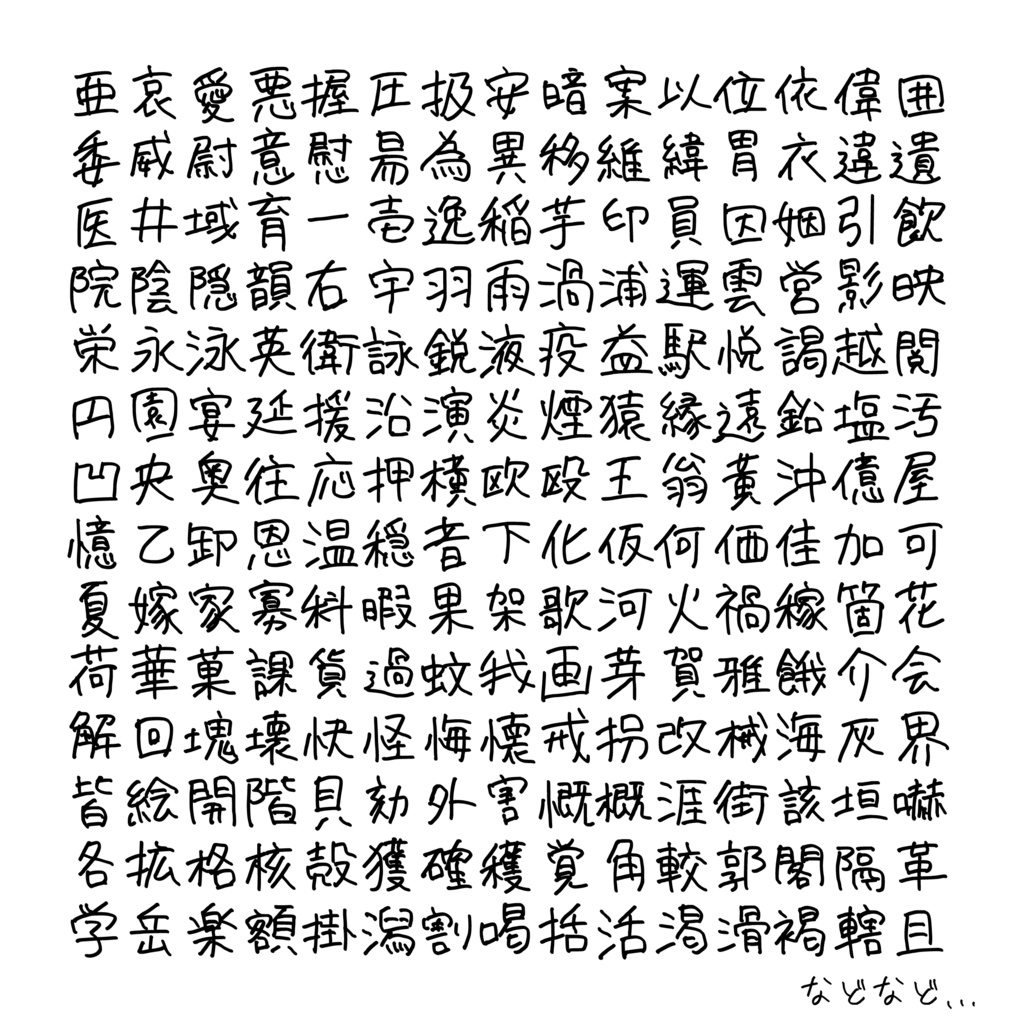 亜哀愛悪握圧扱安暗案以位依偉囲
委威尉意慰易為異移維緯胃衣違遺
医井域育一壱逸稲芋印員因姻引飲
院陰隠韻右宇羽雨渦浦運雲営影映
栄永泳英衛詠鋭液疫益駅悦謁越閲
円園宴延援沿演炎煙猿縁遠鉛塩汚
凹央奥往応押横欧殴王翁黄沖億屋
憶乙卸恩温穏音下化仮何価佳加可
夏嫁家寡科暇果架歌河火禍稼箇花
荷華菓課貨過蚊我画芽賀雅餓介会
解回塊壊快怪悔懐戒拐改械海灰界
皆絵開階貝劾外害慨概涯街該垣嚇
各拡格核殻獲確穫覚角較郭閣隔革
学岳楽額掛潟割喝括活渇滑褐轄且
などなど...